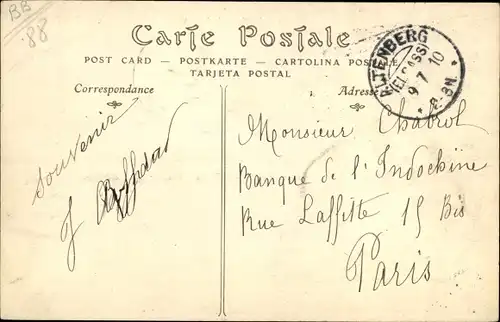 BB
88
Carte Postale
POST CARD — POSTKARTE — CARTOLINA POSTALE
TARJETA POSTAL
Correspondance
Adresse
(ELSASS)
9 7 10
Souvenir
J
Monsieur Chabrol
Banque de l'Indochine
Rue Laffitte 15 Bis
Paris